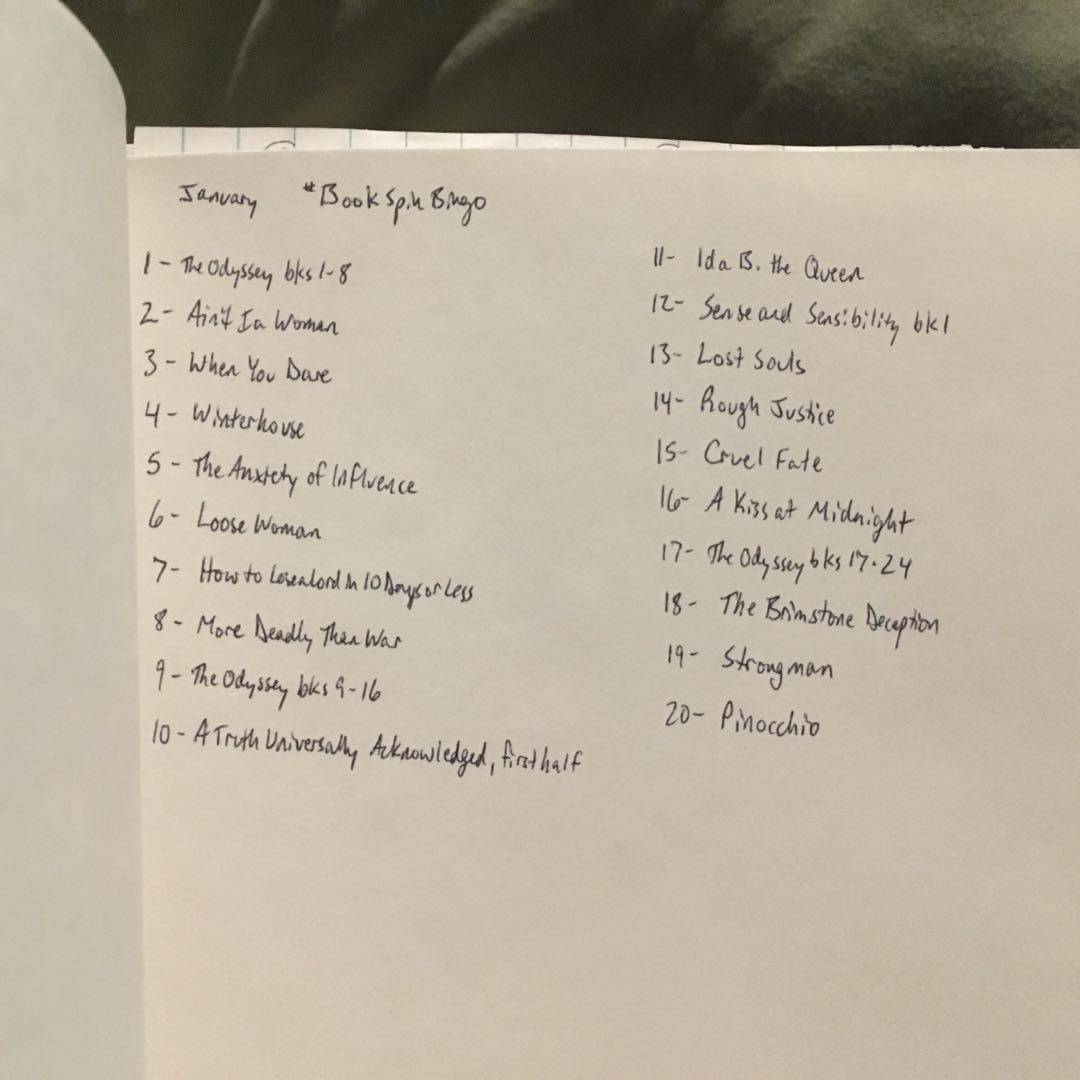 January #BookSpinBingo
1 - The Odyssey bks 1-8
2 - Ain't I a Woman
3 - When You Dare
4 - Winterhouse
5 - The Anxiety of Influence
6 - Loose Woman
7 - How to Lose a Lord in 10 Days or Less
8 - More Deadly Than War
9 - The Odyssey bks 9-16
10 - A Truth Universally Acknowledged, first half
11- Ida B. the Queen
12- Sense and Sensibility bk 1
13- Lost Souls
14- Rough Justice
15- Cruel Fate
16- A Kiss at Midnight
17- The Odyssey bks 17-24
18- The Brimstone Deception
19- Strongman
20- Pinocchio